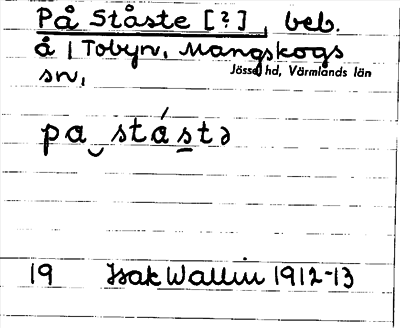 På Ståste [?], beb.
å 1 Tobyn, Mangskogs
sn,
Jösse hd, Värmlands län
pa‿stástə
19 Isak Wallin 1912-13